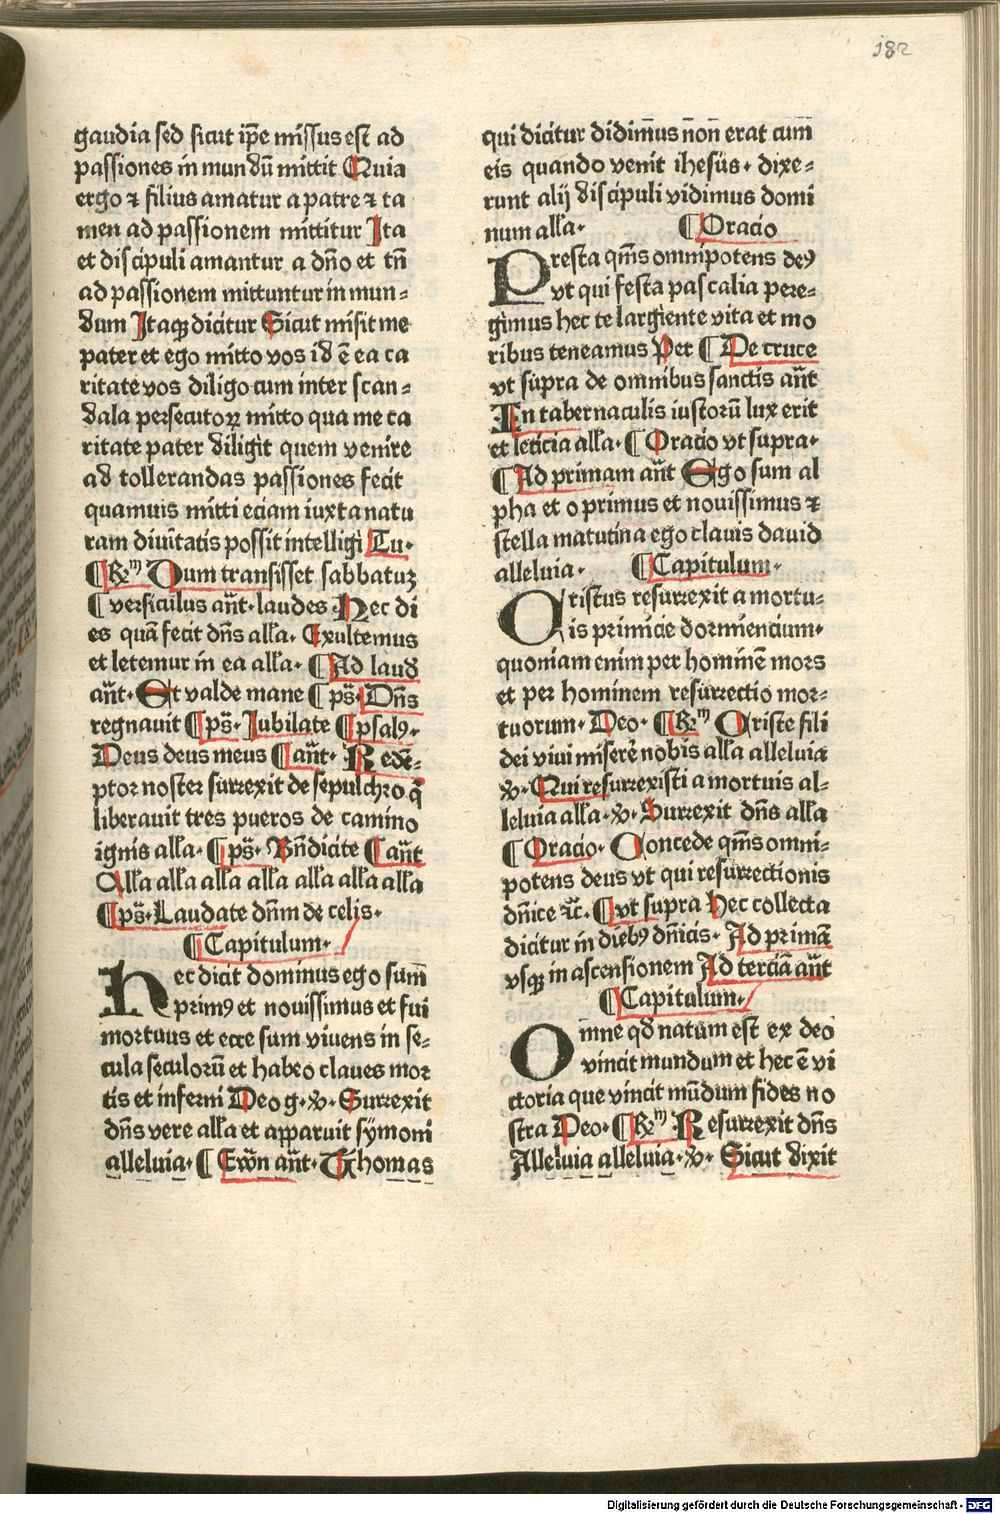 182
gaudia sed sicut ip̄e missus est ad
passiones in mundū mittit Quia
ergo ⁊ filius amatur a patre ⁊ ta
men ad passionem mittitur Ita
et discipuli amantur a dn̄o et tn̄
ad passionem mittuntur in mun-
dum Itaqꝫ dicitur Sicut misit me
pater et ego mitto vos id ē ea ca
ritate vos diligo cum inter scan-
dala persecutoꝝ mitto qua me ca
ritate pater diligit quem venire
ad tollerandas passiones fecit
quamuis mitti eciam iuxta natu
ram diuītatis possit intelligi Tu·
¶ R̄m Dum transisset sabbatuꝫ
¶ versiculus an̄t· laudes· Hec di
es quā fecit dn̄s alła· Exultemus
et letemur in ea alła· ¶ Ad laud
an̄t· Et valde mane ¶ ps̄· Dn̄s
regnauit ¶ ps̄· Jubilate ¶ psalꝰ·
Deus deus meus ¶ an̄t· Redē-
ptor noster surrexit de sepulchro q̄
liberauit tres pueros de camino
ignis alła· ¶ ps̄· Bn̄dicite ¶ an̄t
Alła alła alła alła alła alła alła
¶ ps̄· Laudate dn̄m de celis·
¶ Capitulum·
Hec dicit dominus ego sum̄
primꝰ et nouissimus et fui
mortuus et ecce sum viuens in se-
cula seculorū et habeo claues mor
tis et inferni Deo g· ℣· Surrexit
dn̄s vere alła et apparuit symoni
alleluia· ¶ Ewn̄ an̄t· Thomas
qui dicitur didim̄us non̄ erat cum
eis quando venit ihesūs· dixe-
runt alij discipuli vidimus domi
num alła· ¶ Oracio
Presta qm̄s omnipotens deꝰ
vt qui festa pascalia pere-
gimus hec te largiente vita et mo
ribus teneamus Per ¶ De cruce
vt supra de omnibus sanctis an̄t
In tabernaculis iustorū lux erit
et leticia alła· ¶ Oracio vt supra·
¶ Ad primam an̄t Ego sum al
pha et o primus et nouissimus ⁊
stella matutina ego clauis dauid
alleluia· ¶ Capitulum·
Cristus resurrexit a mortu-
is primicie dormiencium·
quoniam enim per hominē mors
et per hominem resurrectio mor-
tuorum· Deo· ¶ R̄m Criste fili
dei viui miserē nobis alła alleluia
℣· Qui resurrexisti a mortuis al-
leluia alła· ℣· Surrexit dn̄s alła
¶ Oracio· Concede qm̄s omni-
potens deus vt qui resurrectionis
dn̄ice ⁊c̄· ¶ vt supra Hec collecta
dicitur in diebꝰ dn̄icis· Ad primā
vsqꝫ in ascensionem Ad terciā an̄t
¶ Capitulum·
Omne qd̄ natum est ex deo
vincit mundum et hec ē vi
ctoria que vincit mūdum fides no
stra Deo· ¶ R̄m Resurrexit dn̄s
Alleluia alleluia· ℣· Sicut dixit
Digitalisierung gefördert durch die Deutsche Forschungsgemeinschaft - DFG